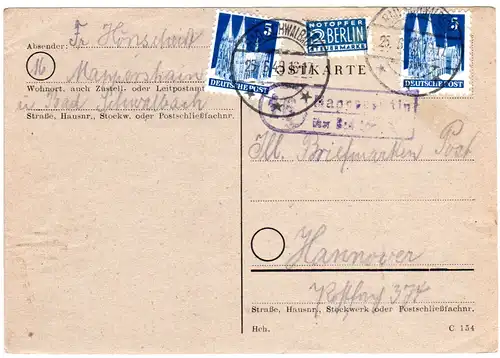 Absender: Fr.
(16) Mappershain
Wohnort, auch Zustell- oder Leitpostamt
Bad Schwalbach
Straße, Hausnr., Stockw. oder Postschließfachnr.
5
DEUTSCHE POST
NOTOPFER
2 BERLIN
STEUERMARKE
5
DEUTSCHE POST
POSTKARTE
Ill. Briefmarken Post
Hannover
Postfach 374
Straße, Hausnr., Stockwerk oder Postschließfachnr.
Hch.
C 154